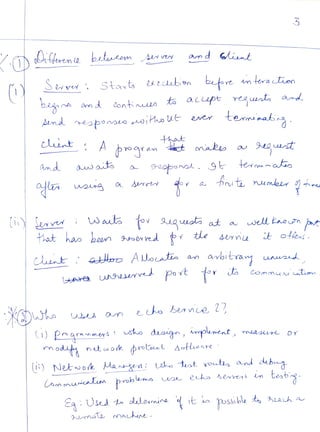 3
① Difference between server and client
(i) Server : Starts execution before interaction
begins and continues to accept requests and
send responses without ever terminating.
Client : A program that makes a request
and awaits a response. It terminates
after using a server for a finite number of times
(ii) Server : Waits for requests at a well known port
that has been reserved for the service it offers.
Client : Allocates an arbitrary unused,
unreserved port for its communication.
② Who uses an echo service ??
(i) Programmers : who design, implement, measure or
modify network protocol software.
(ii) Network Managers : who test routes and debug
communication problems use echo servers in testing.
Eg : Used to determine if it is possible to reach a
remote machine.